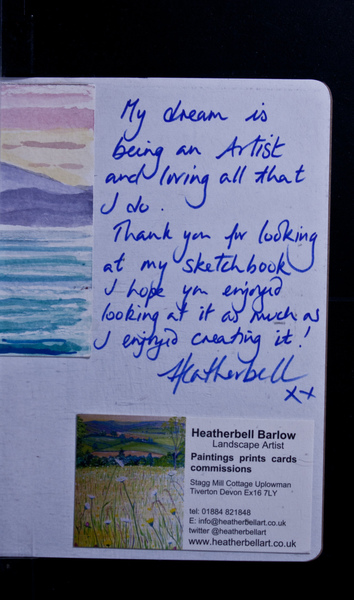 My dream is
being an Artist
and loving all that
I do.
Thank you for looking
at my sketchbook
I hope you enjoyed
looking at it as much as
I enjoyed creating it!
Heatherbell
xx
Heatherbell Barlow
Landscape Artist
Paintings prints cards
commissions
Stagg Mill Cottage Uplowman
Tiverton Devon Ex16 7LY
tel: 01884 821848
E: info@heatherbellart.co.uk
twitter @heatherbellart
www.heatherbellart.co.uk